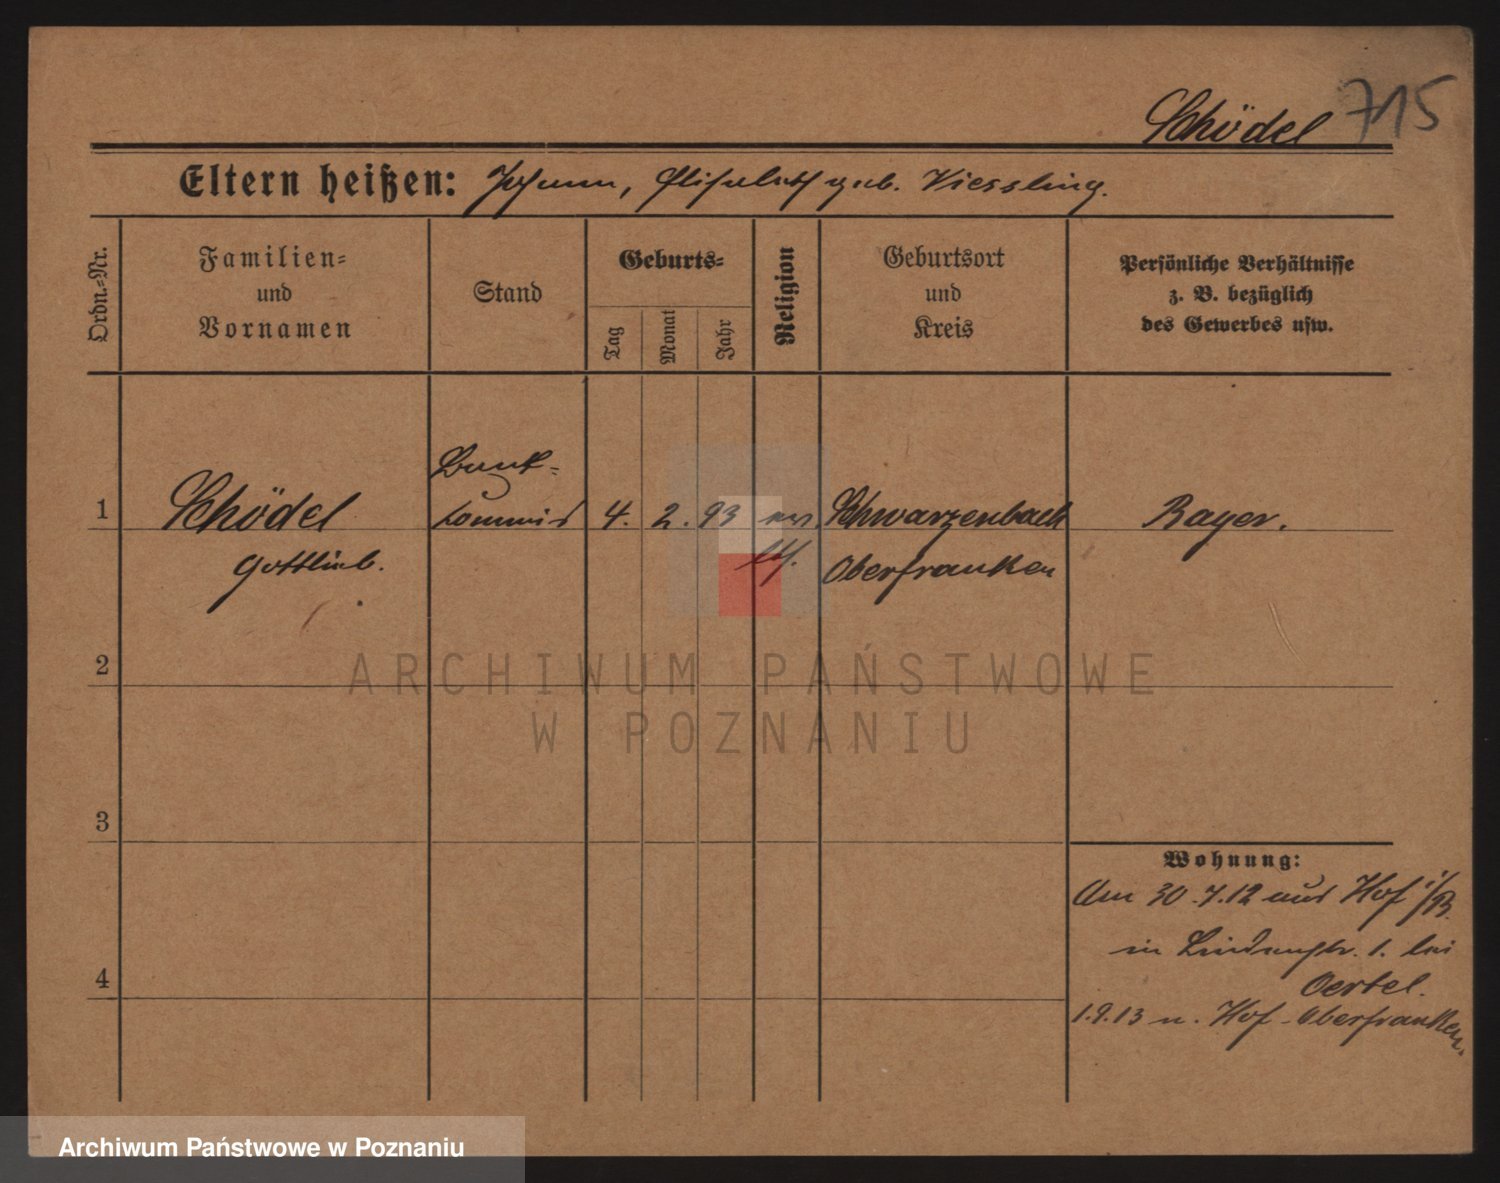 Schödel 715
Eltern heißen: Johann, Elisabeth geb. Kiessling.
Ordn.-Nr.
Familien-
und
Vornamen
Stand
Geburts-
Tag
Monat
Jahr
Religion
Geburtsort
und
Kreis
Persönliche Verhältnisse
z. B. bezüglich
des Gewerbes usw.
Bank-
1 Schödel commis 4. 2. 93 ev. Schwarzenbach Bayer.
Gottlieb. lth. Oberfranken
2
3
4
Wohnung:
Am 30.7.12 aus Hof i/B.
in Lindenstr. 1. bei
Oertel.
1.9.13 n. Hof - Oberfranken.
ARCHIWUM PAŃSTWOWE
W POZNANIU
Archiwum Państwowe w Poznaniu